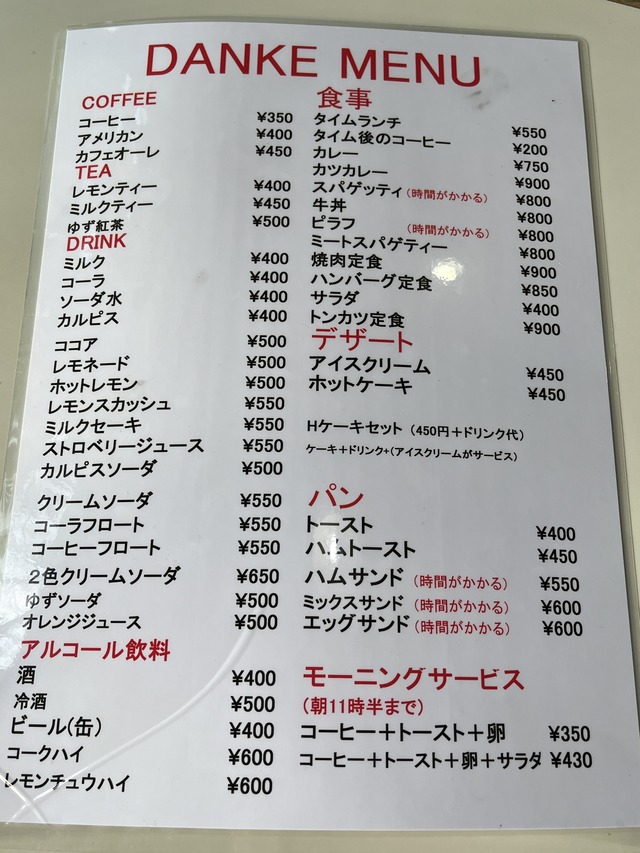 DANKE MENU
COFFEE
コーヒー ¥350
アメリカン ¥400
カフェオーレ ¥450
TEA
レモンティー ¥400
ミルクティー ¥450
ゆず紅茶 ¥500
DRINK
ミルク ¥400
コーラ ¥400
ソーダ水 ¥400
カルピス ¥400
ココア ¥500
レモネード ¥500
ホットレモン ¥500
レモンスカッシュ ¥550
ミルクセーキ ¥550
ストロベリージュース ¥550
カルピスソーダ ¥500
クリームソーダ ¥550
コーラフロート ¥550
コーヒーフロート ¥550
2色クリームソーダ ¥650
ゆずソーダ ¥500
オレンジジュース ¥500
アルコール飲料
酒 ¥400
冷酒 ¥500
ビール(缶) ¥400
コークハイ ¥600
レモンチュウハイ ¥600
食事
タイムランチ ¥550
タイム後のコーヒー ¥200
カレー ¥750
カツカレー ¥900
スパゲッティ(時間がかかる) ¥800
牛丼 ¥800
ピラフ (時間がかかる) ¥800
ミートスパゲティー ¥800
焼肉定食 ¥900
ハンバーグ定食 ¥850
サラダ ¥400
トンカツ定食 ¥900
デザート
アイスクリーム ¥450
ホットケーキ ¥450
Hケーキセット (450円+ドリンク代)
ケーキ+ドリンク+(アイスクリームがサービス)
パン
トースト ¥400
ハムトースト ¥450
ハムサンド (時間がかかる) ¥550
ミックスサンド (時間がかかる) ¥600
エッグサンド (時間がかかる) ¥600
モーニングサービス
(朝11時半まで)
コーヒー+トースト+卵 ¥350
コーヒー+トースト+卵+サラダ ¥430